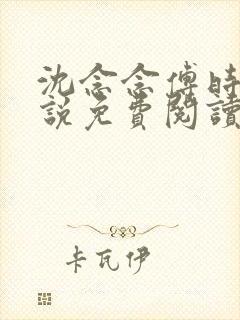 沈念念傅時
說免費閱讀
卡瓦伊